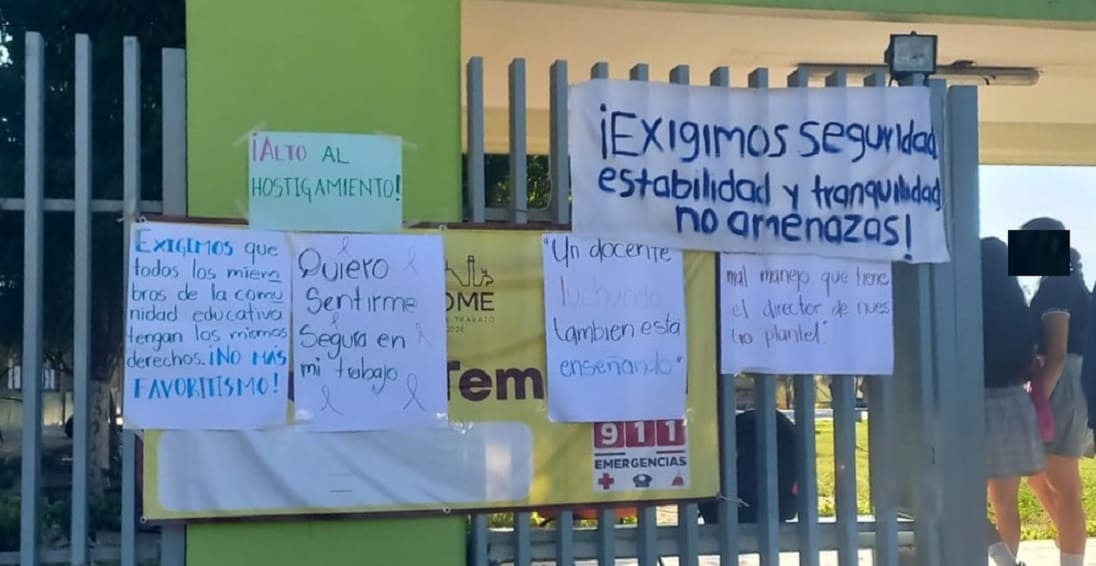 ¡ALTO AL
HOSTIGAMIENTO!
¡EXIGIMOS SEGURIDAD,
estabilidad y tranquilidad
no amenazas!
EXIGIMOS que
todos los miem
bros de la comu
nidad educativa
tengan los mismos
derechos. ¡NO MÁS
FAVORITISMO!
Quiero
Sentirme
Segura en
mi trabajo
"Un docente
luchando
tambien esta
enseñando"
mal manejo que tiene
el director de nues
tro plantel"
OME
TRABAJO
Tem
911
EMERGENCIAS